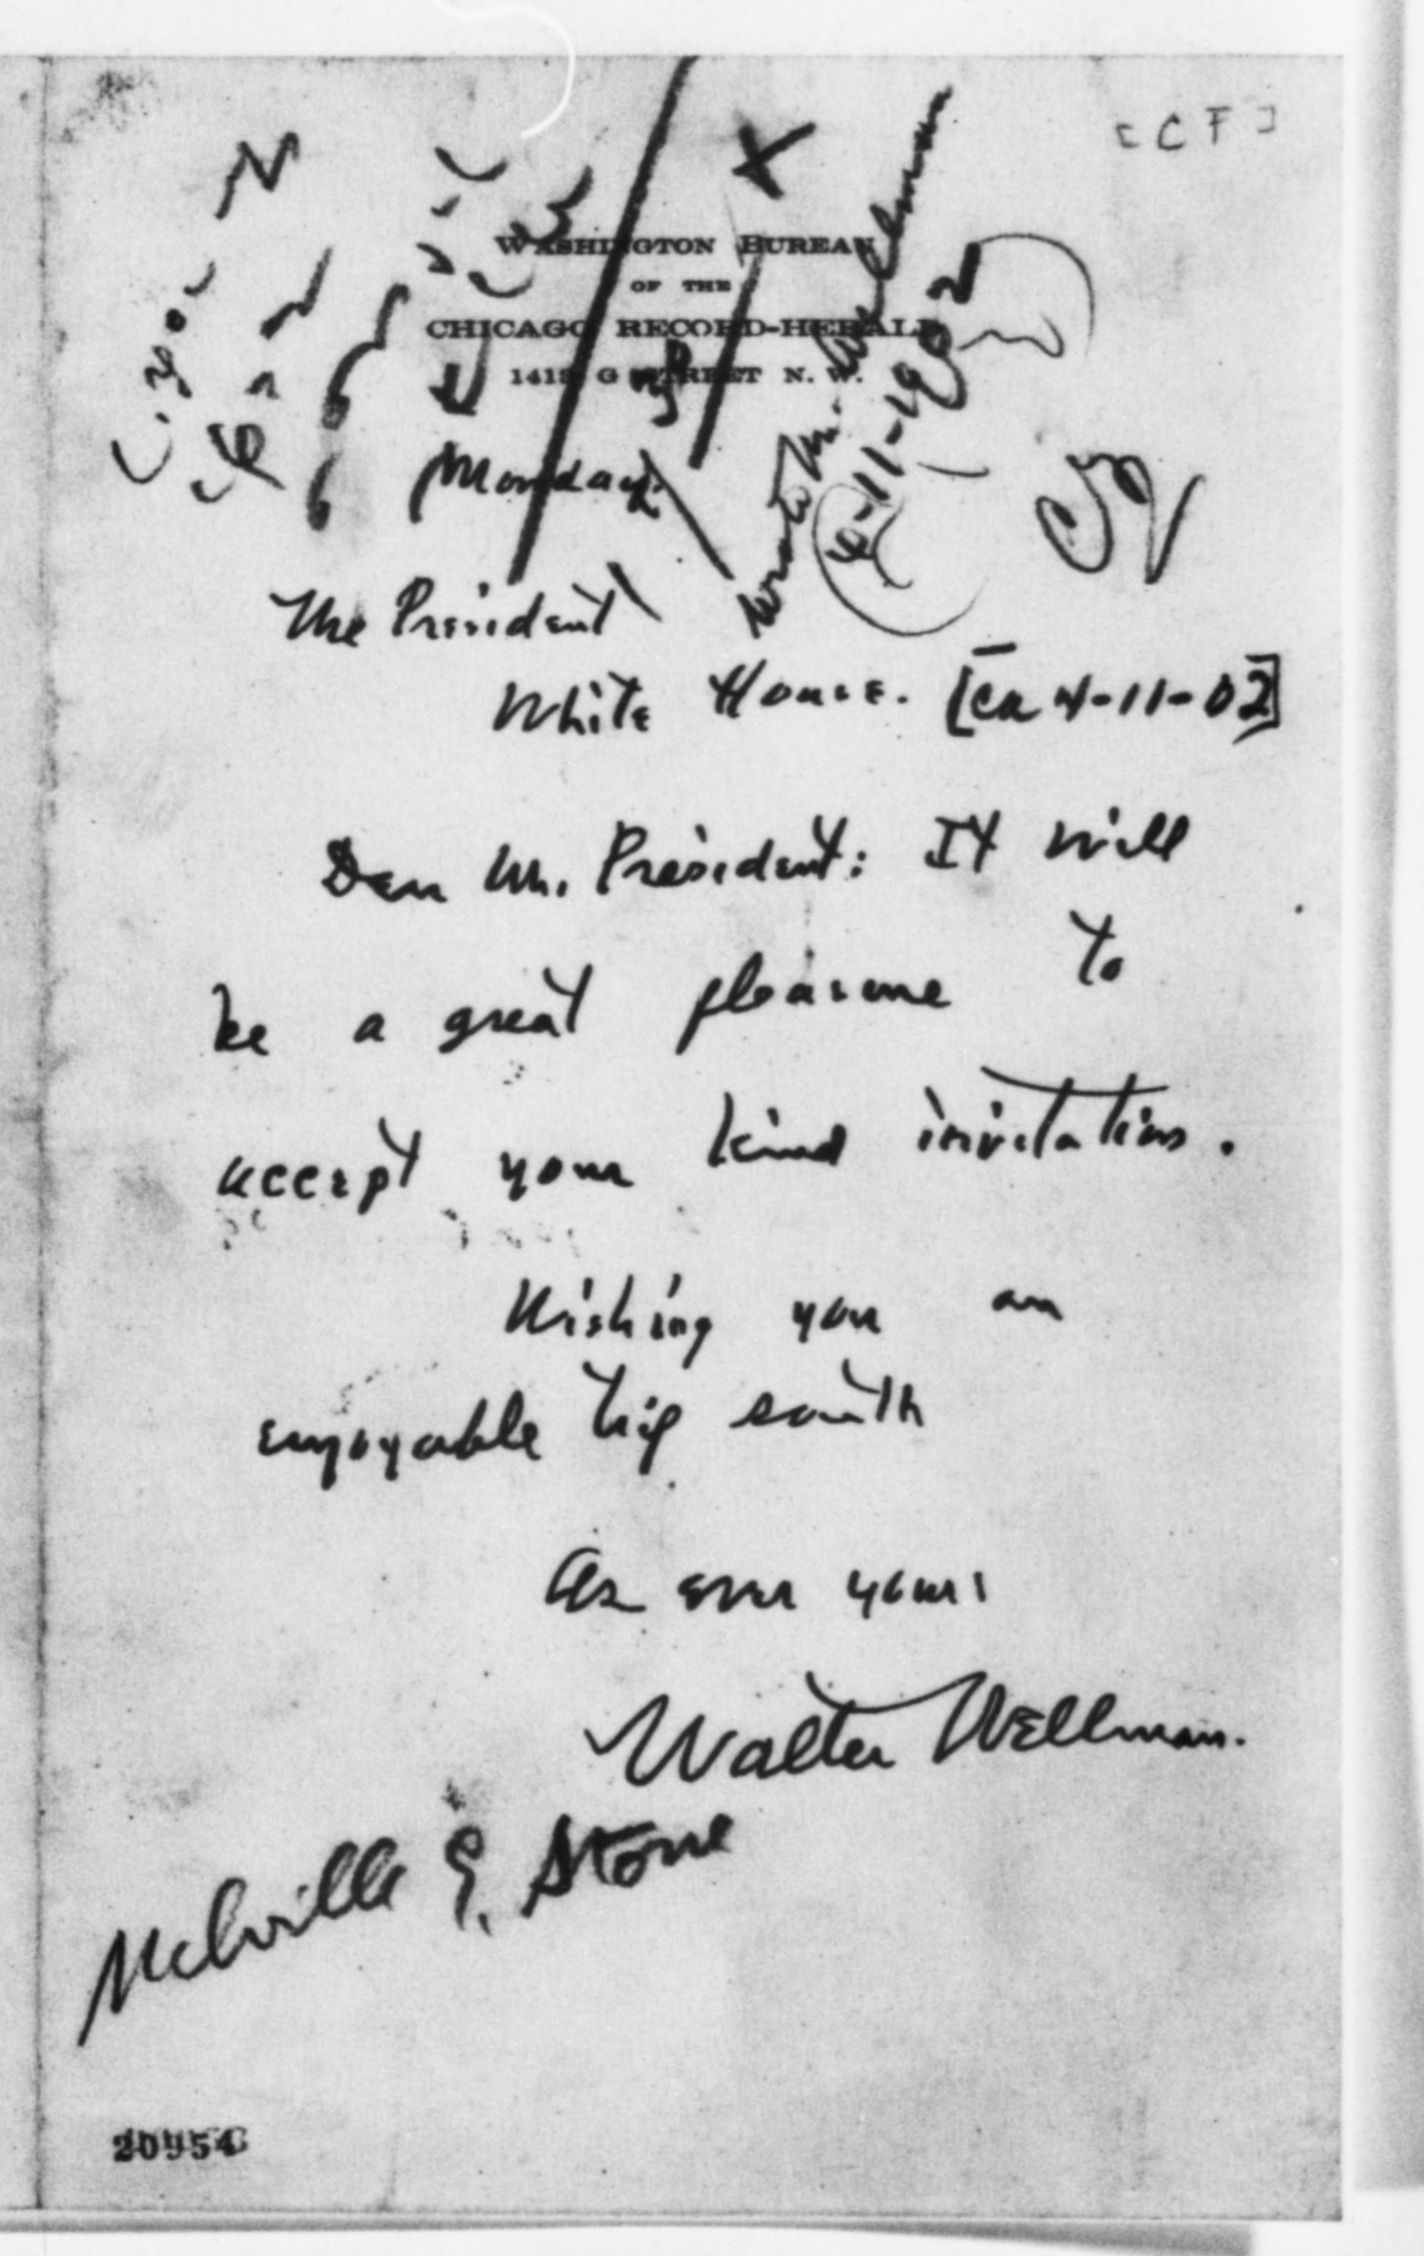 [CF]
WASHINGTON BUREAU
OF THE
CHICAGO RECORD-HERALD
1413 G STREET N. W.
Monday.
Wrote Mr. Wellman
4-11-1902
The President
White House. [ca 4-11-02]
Dear Mr. President: It will
be a great pleasure to
accept your kind invitation.
Wishing you an
enjoyable trip south
As ever yours
Walter Wellman.
Melville E. Stone